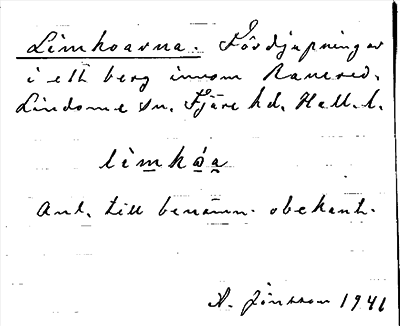 Limkoarna. Fördjupningar
i ett berg innom Ranered,
Lindome sn. Fjäre hd. Hall. l.
lìmkòa
Anl. till benämn. obekant.
A. Jönsson 1941